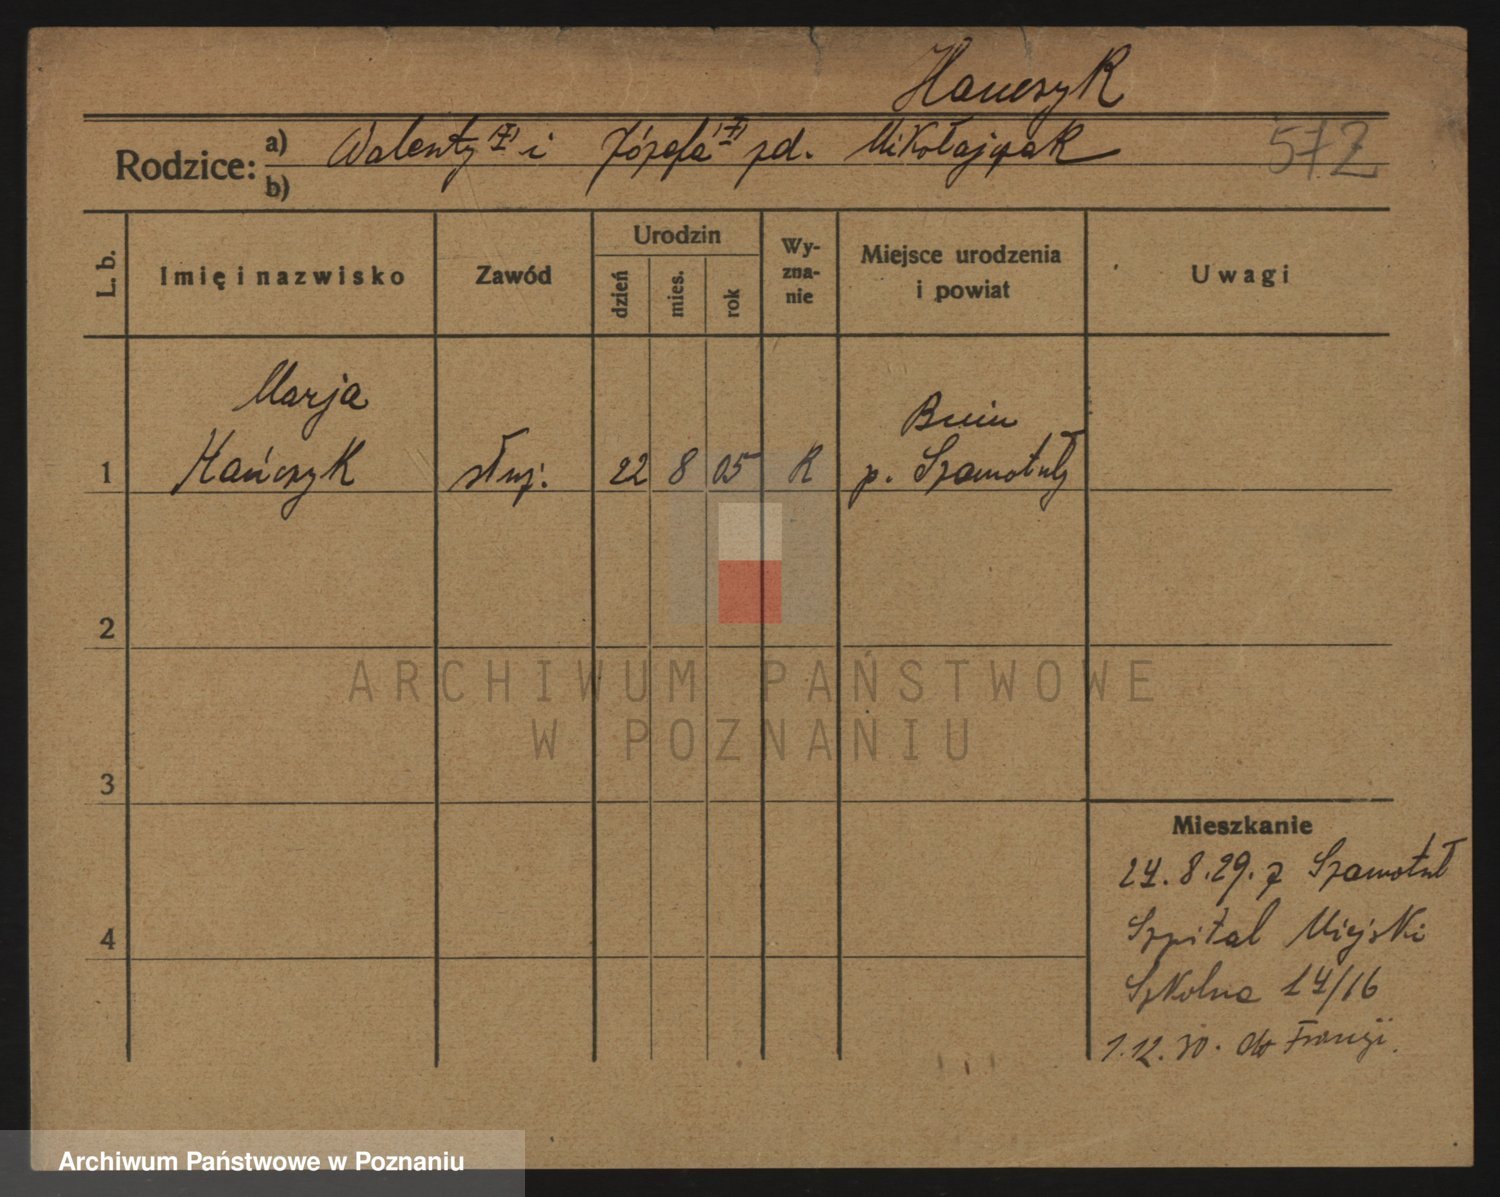 Hanczyk
Rodzice: a) Walenty (†) i Józefa (†) zd. Mikołajczak
b)
572
L. b.
Imię i nazwisko
Zawód
Urodzin
dzień
mies.
rok
Wy-
zna-
nie
Miejsce urodzenia
i powiat
Uwagi
Marja
1 Hańczyk służ. 22 8 05 R
p. Szamotuły
2
ARCHIWUM PAŃSTWOWE
W POZNANIU
3
Mieszkanie
24.8.29. z Szamotuł
4
Szpital Miejski
Szkolna 14/16
1.12.30. do Francji.
Archiwum Państwowe w Poznaniu